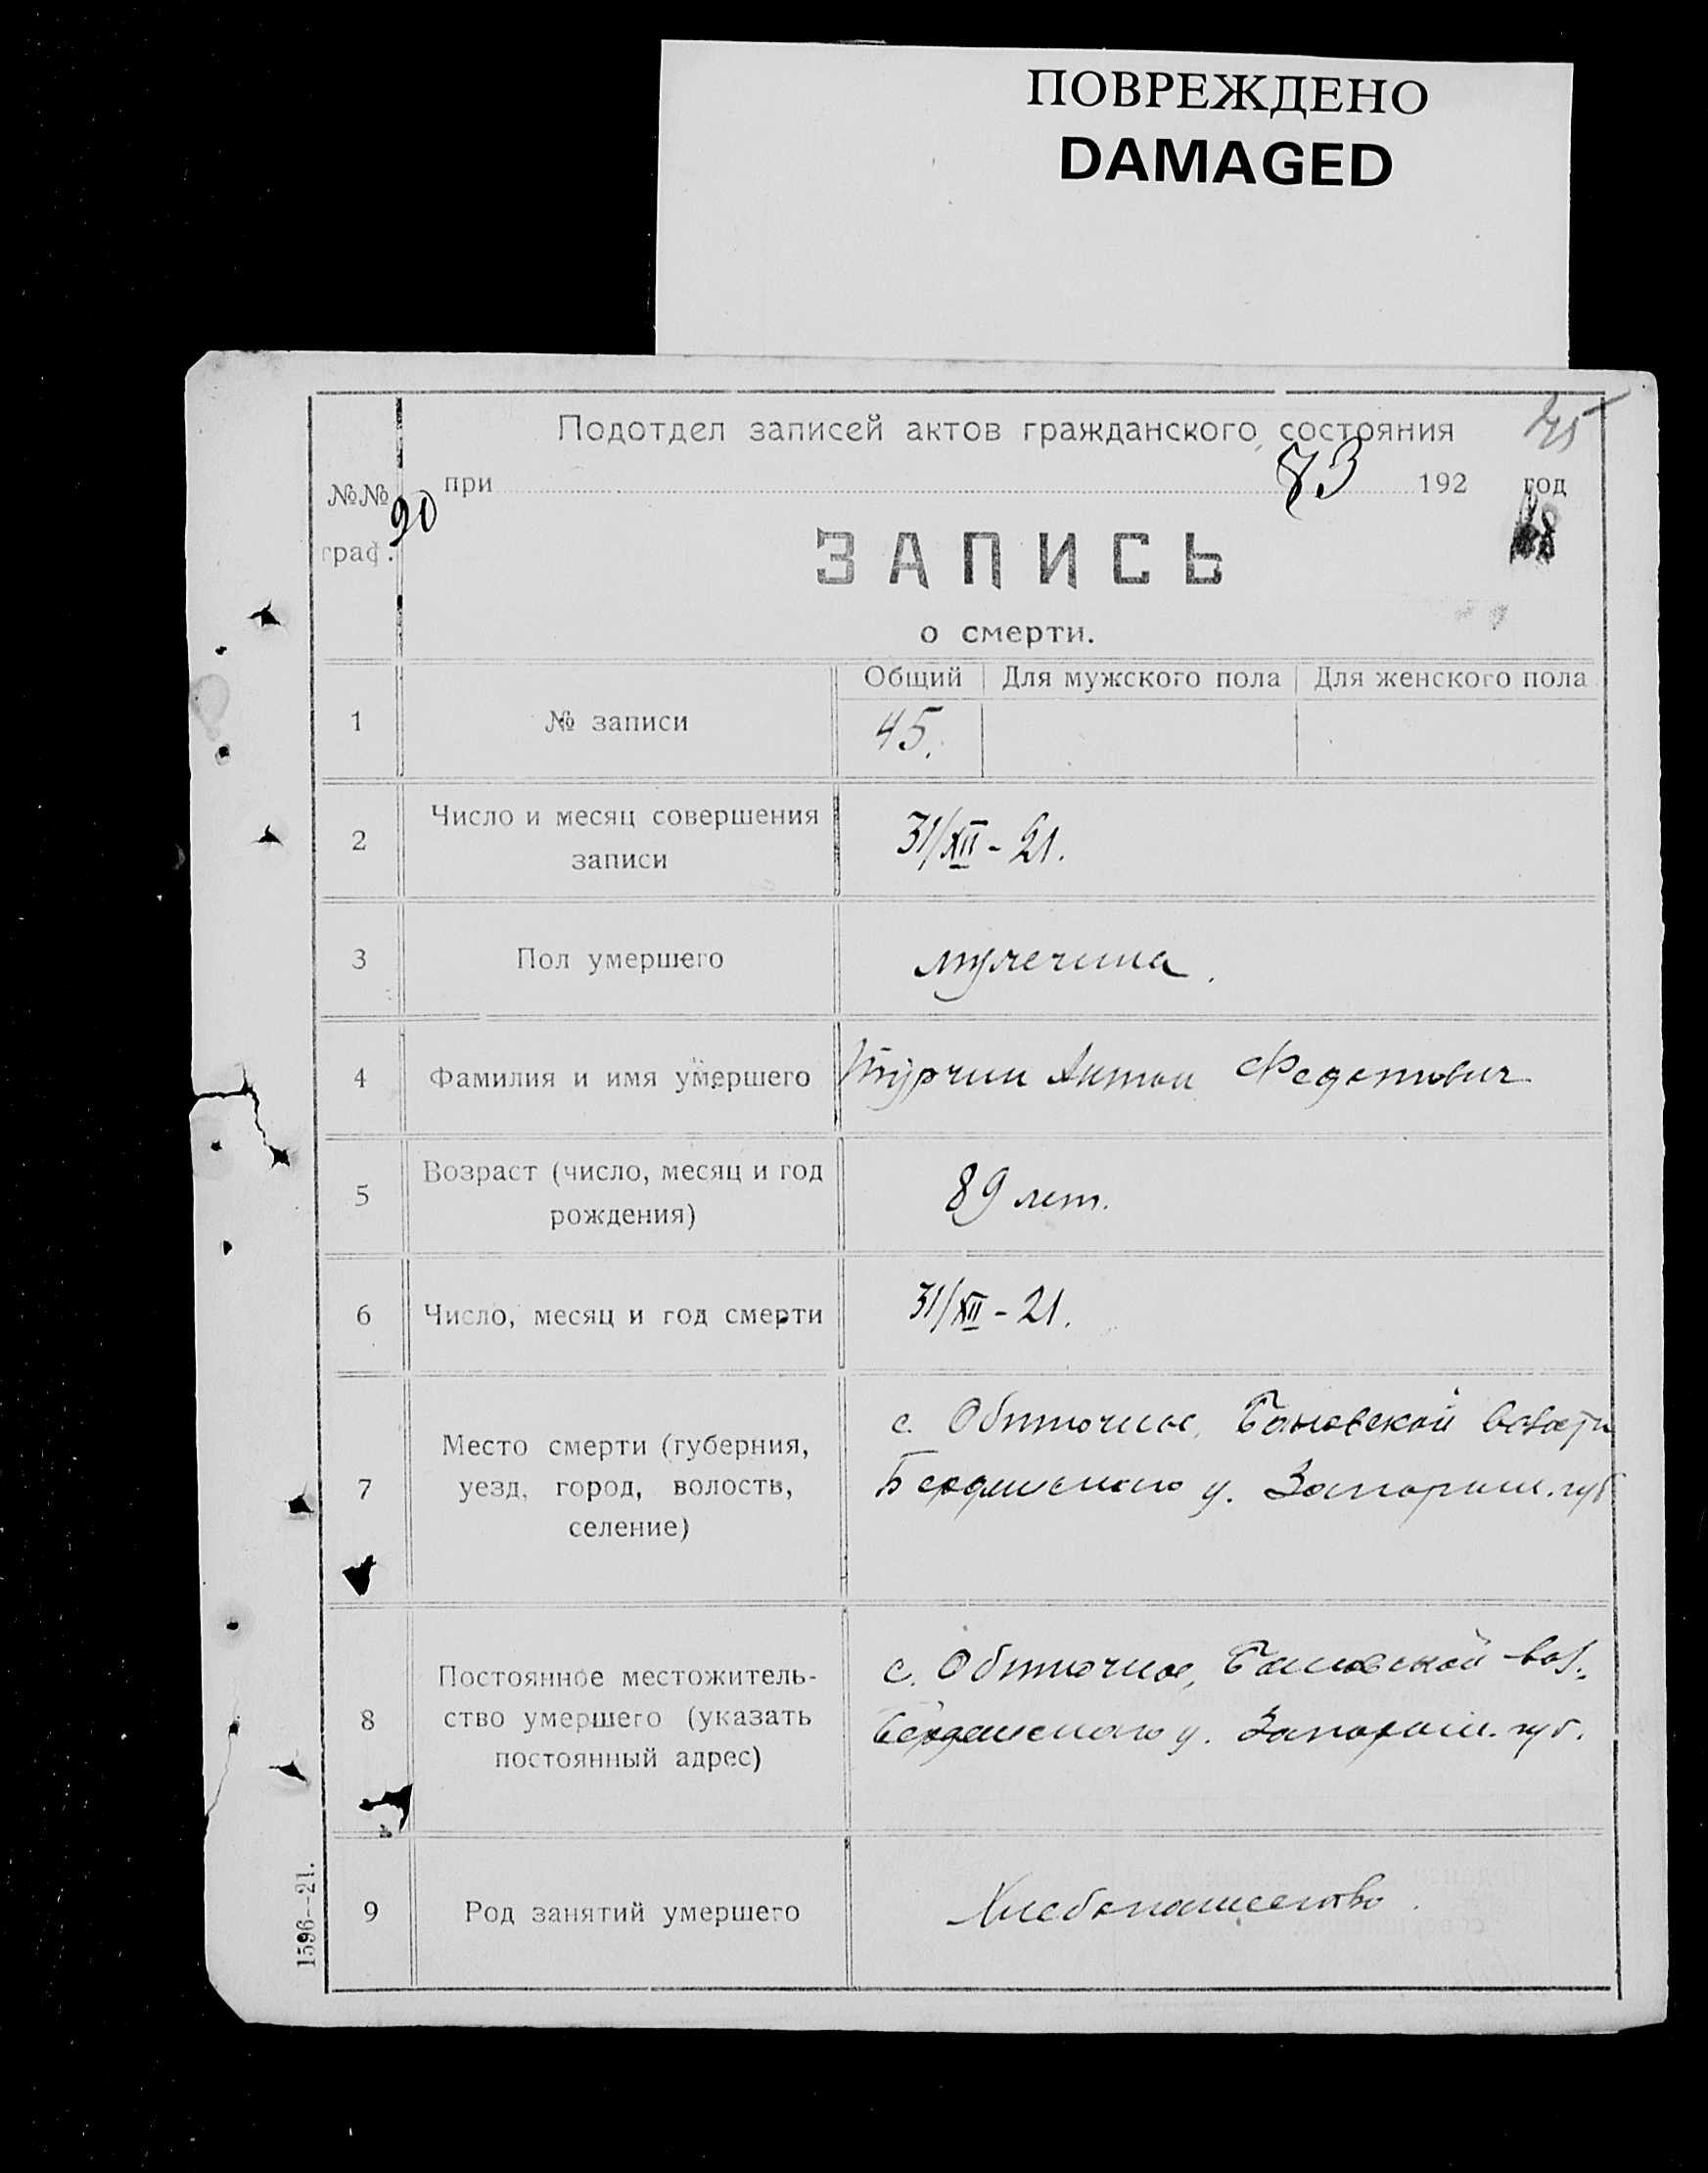 ПОВРЕЖДЕНО
DAMAGED
Подотдел записей актов гражданского состояния
45
№№ граф.
90
при 73 192 год
ЗАПИСЬ
о смерти.
Общий Для мужского пола Для женского пола
1 № записи 45.
2 Число и месяц совершения
записи
31/XII - 21.
3 Пол умершего мужчина.
4 Фамилия и имя умершего Турчин Антон Федотович
5 Возраст (число, месяц и год
рождения)
89 лет.
6 Число, месяц и год смерти 31/XII - 21.
7 Место смерти (губерния,
уезд, город, волость,
селение)
с. Обиточное, Бановской
Бердянского у. Запорож. губ
8 Постоянное местожитель-
ство умершего (указать
постоянный адрес)
с. Обиточное, Бановской вол.
Бердянского у. Запорож. губ.
9 Род занятий умершего Хлебопашество.
1596—21.